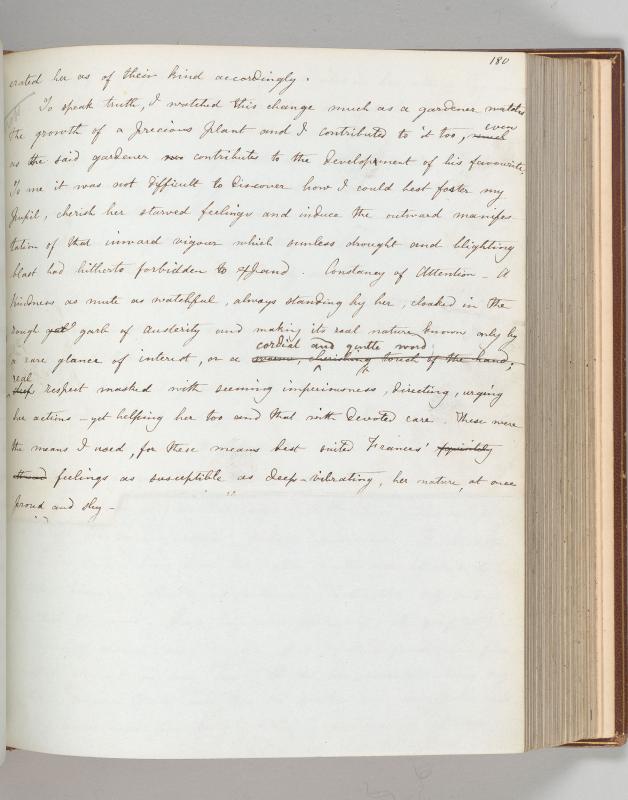 180
erated her as of their kind accordingly.
To speak truth, I watched this change much as a gardener watches
the growth of a precious plant and I contributed to it too, even
as the said gardener contributes to the development of his favourite.
To me it was not difficult to discover how I could best foster my
pupil, cherish her starved feelings and induce the outward manifes
tation of that inward vigour which sunless drought and blighting
blast had hitherto forbidden to expand. Constancy of Attention - A
kindness as mute as watchful, always standing by her, cloaked in the
rough garb of austerity and making its real nature known only by
a rare glance of interest, or a cordial and gentle word
cherishing touch of the hand;
real respect masked with seeming imperiousness, directing, urging
her actions - yet helping her too and that with devoted care. These were
the means I used, for these means best suited Frances'
feelings as susceptible as deep-vibrating, her nature, at once
proud and shy -